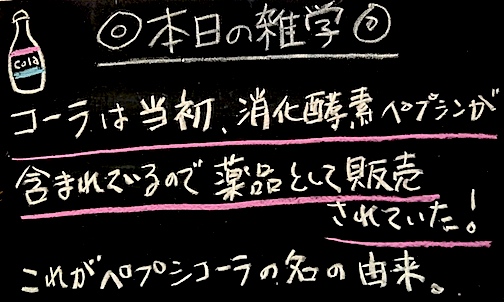 Cola
◎本日の雑学◎
コーラは当初、消化酵素ペプシンが
含まれているので薬品として販売
されていた！
これがペプシコーラの名の由来。